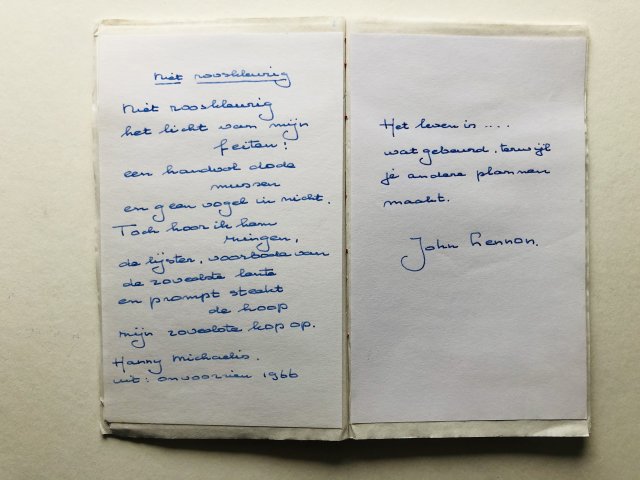 Niet rooskleurig
Niet rooskleurig
het licht van mijn
feiten:
een handvol dode
mussen
en geen vogel in zicht.
Toch hoor ik hem
zingen,
de lijster, voorbode van
de zoveelste lente
en prompt steekt
de hoop
mijn zoveelste kop op.
Hanny Michaelis.
uit: onvoorzien 1966
Het leven is ....
wat gebeurd, terwijl
je andere plannen
maakt.
John Lennon.